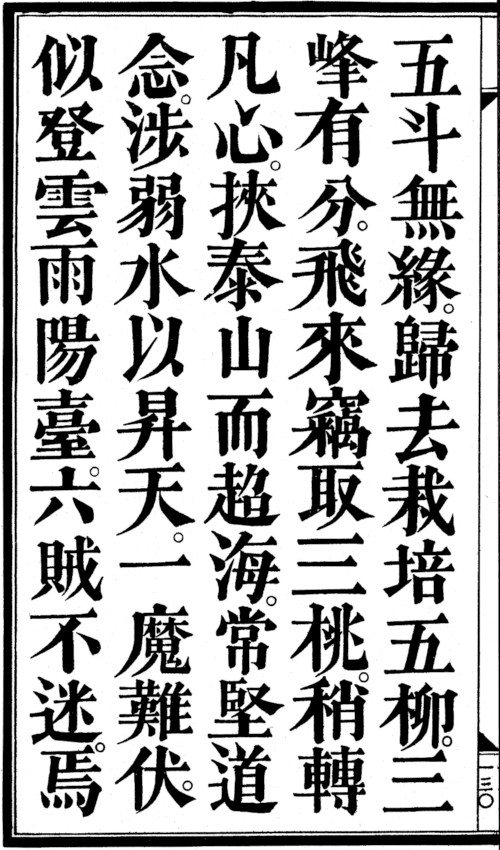 五斗無緣。歸去栽培五柳。三
峰有分。飛來竊取三桃。稍轉
凡心。挾泰山而超海。常堅道
念。涉弱水以昇天。一魔難伏。
似登雲雨陽臺。六賊不迷。焉
一三〇